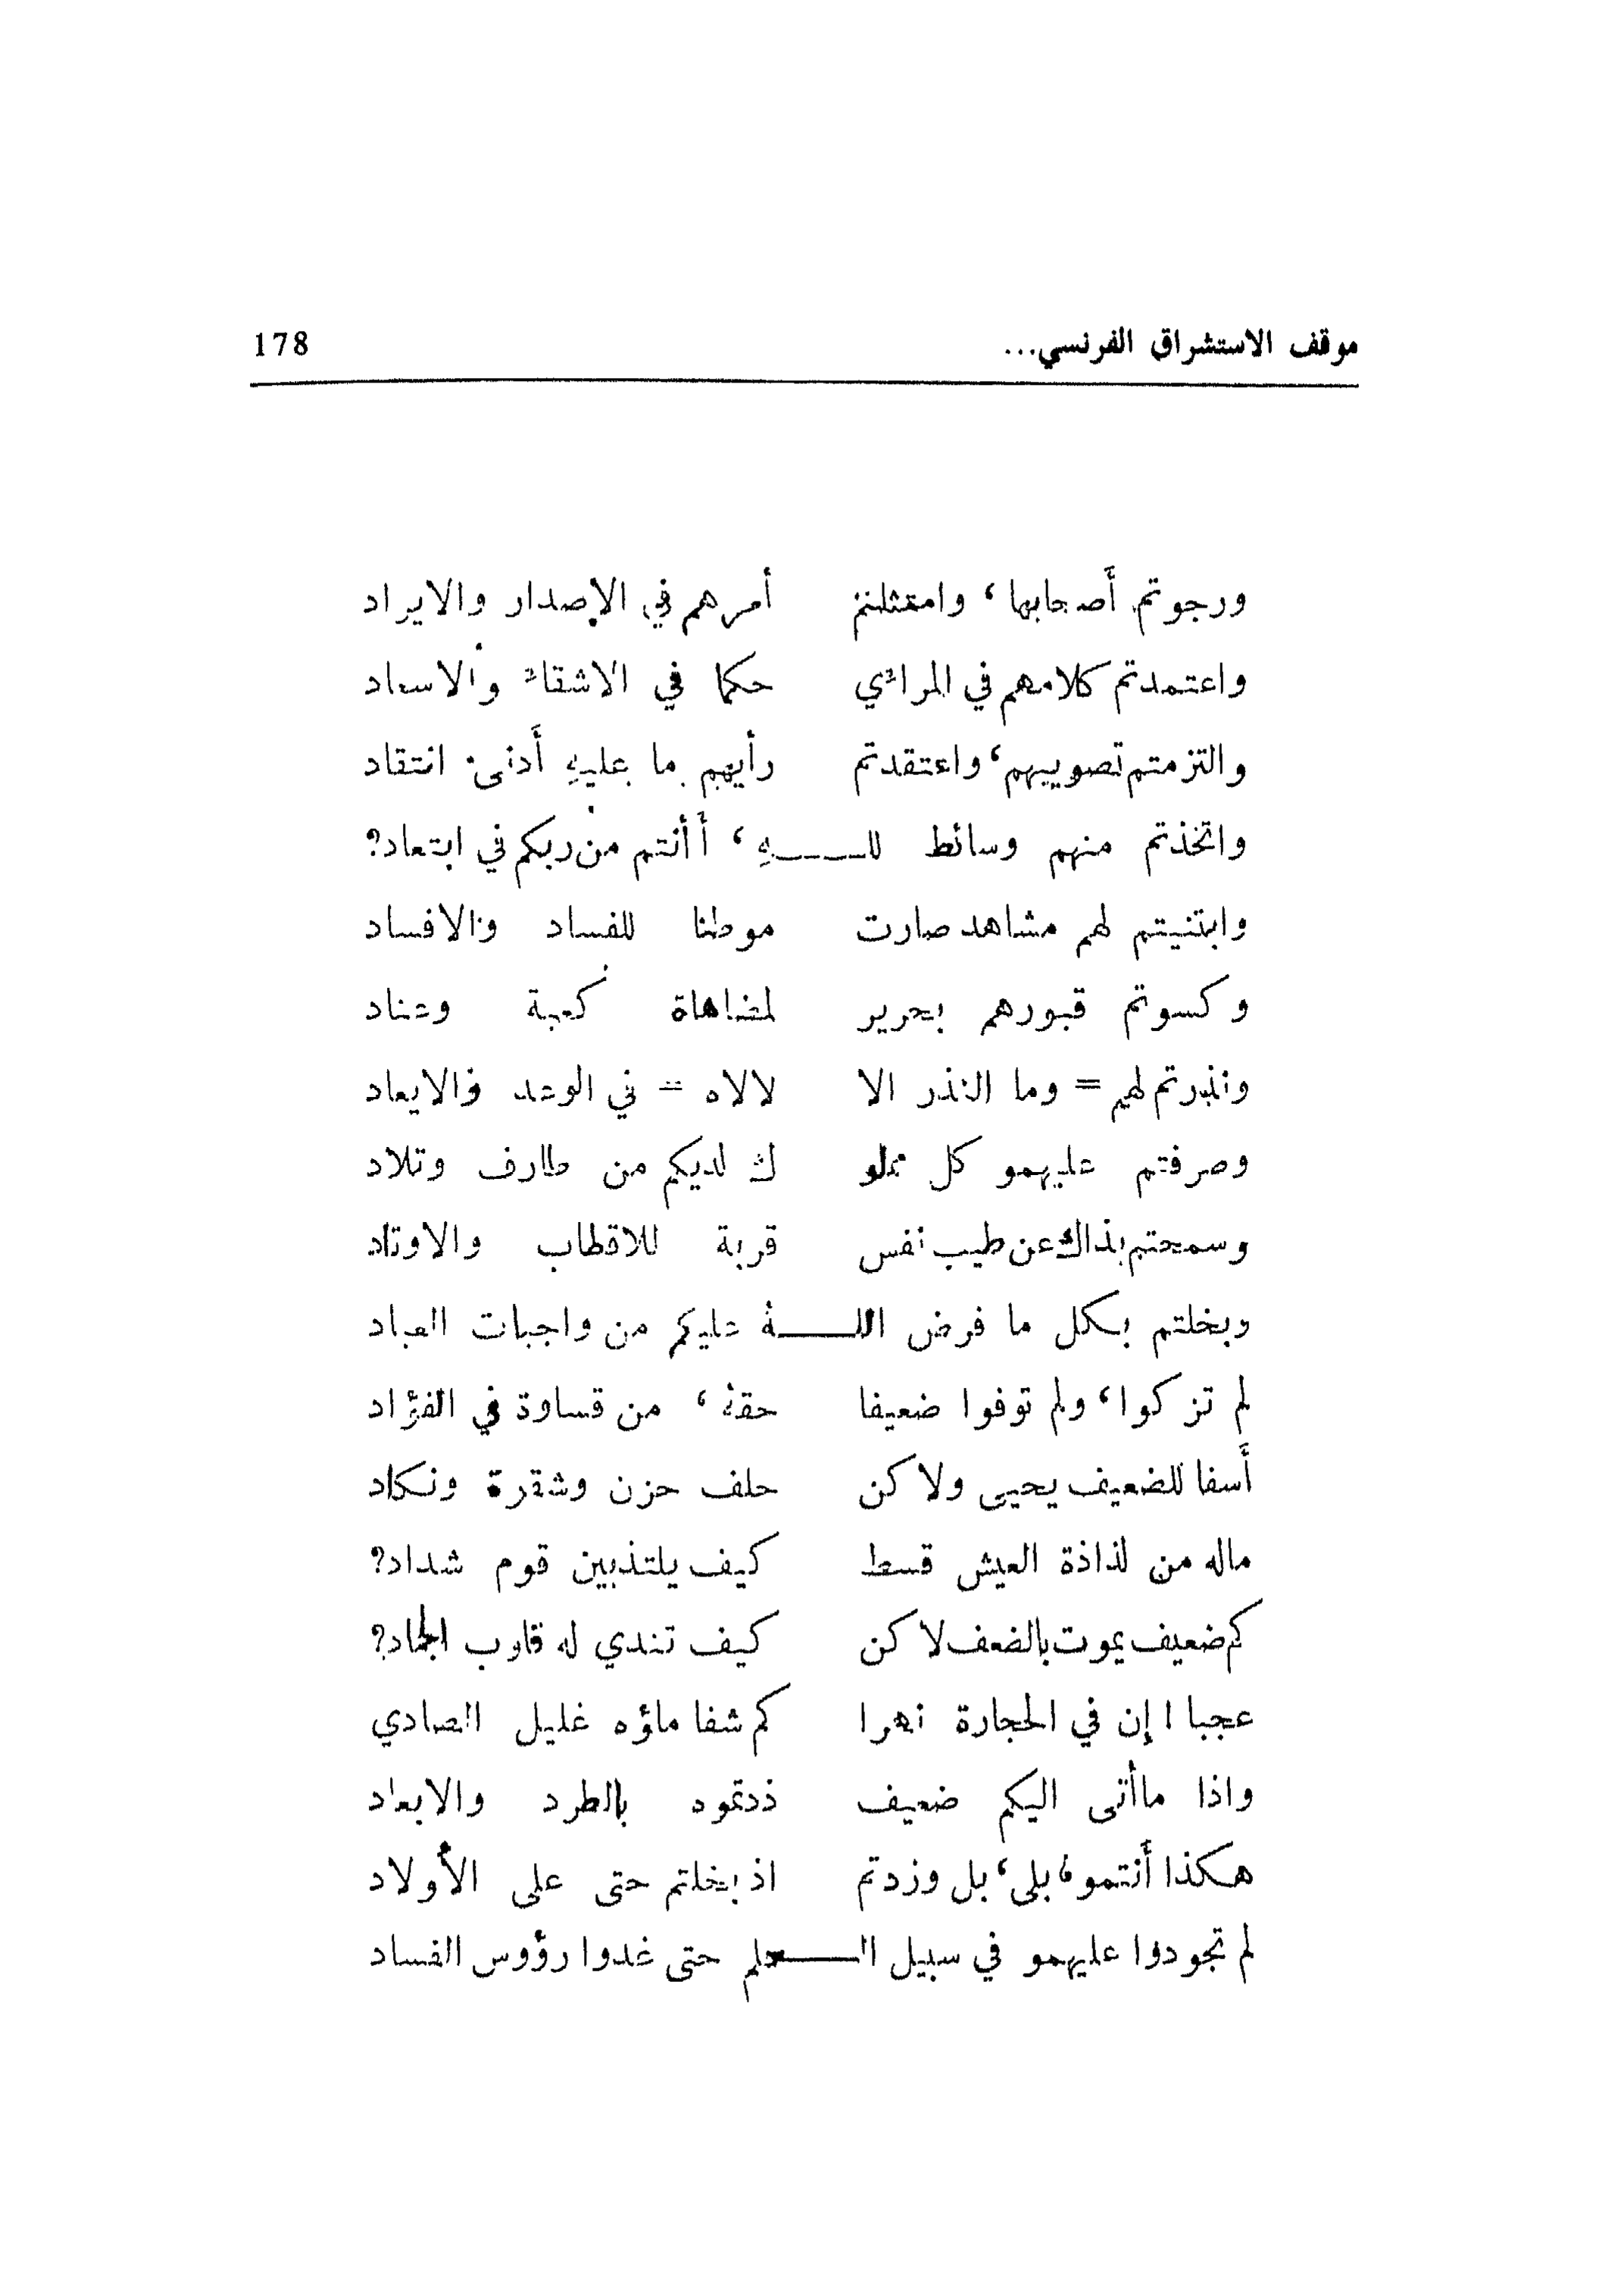 موقف الاستشراق الفرنسي... 178
ورجوتم أصحابها، وامتثلتم أمرهم في الإصدار والايراد
واعتمدتم كلامهم في المرائي حكما في الاشقاء والاسعاد
والتزمتم تصويبهم، واعتقدتم رأيهم ما عليهِ أدنى انتقاد
واتخذتم منهم وسائط للـــــهِ، أأنتم من ربكم في ابتعاد؟
وابتنيتم لهم مشاهد صارت موطنا للفساد والافساد
وكسوتم قبورهم بحرير لمضاهاة كعبة وعناد
ونذرتم لهم = وما النذر الا لالاه = في الوعد والايعاد
وصرفتم عليهمو كل مملو ك لديكم من طارف وتلاد
وسمحتم بذاك عن طيب نفس قربة للاقطاب والاوتاد
وبخلتم بكل ما فرض اللـــــهُ عليكم من واجبات العباد
لم تزكوا، ولم توفوا ضعيفا حقهُ، من قساوة في الفؤاد
أسفا للضعيف يحيى ولاكن حلف حزن وشقوة ونكاد
ماله من لذاذة العيش قسط كيف يلتذ بين قوم شداد؟
كم ضعيف يموت بالضعف لاكن كيف تندي له قلوب الجماد؟
عجبا ! إن في الحجارة نهرا كم شفا ماؤه غليل الصادي
واذا ماأتى اليكم ضعيف ذدتموه بالطرد والابعاد
هكذا أنتمو، بلى، بل وزدتم اذ بخلتم حتى على الأولاد
لم تجودوا عليهمو في سبيل الـــــعلم حتى غدوا رؤوس الفساد